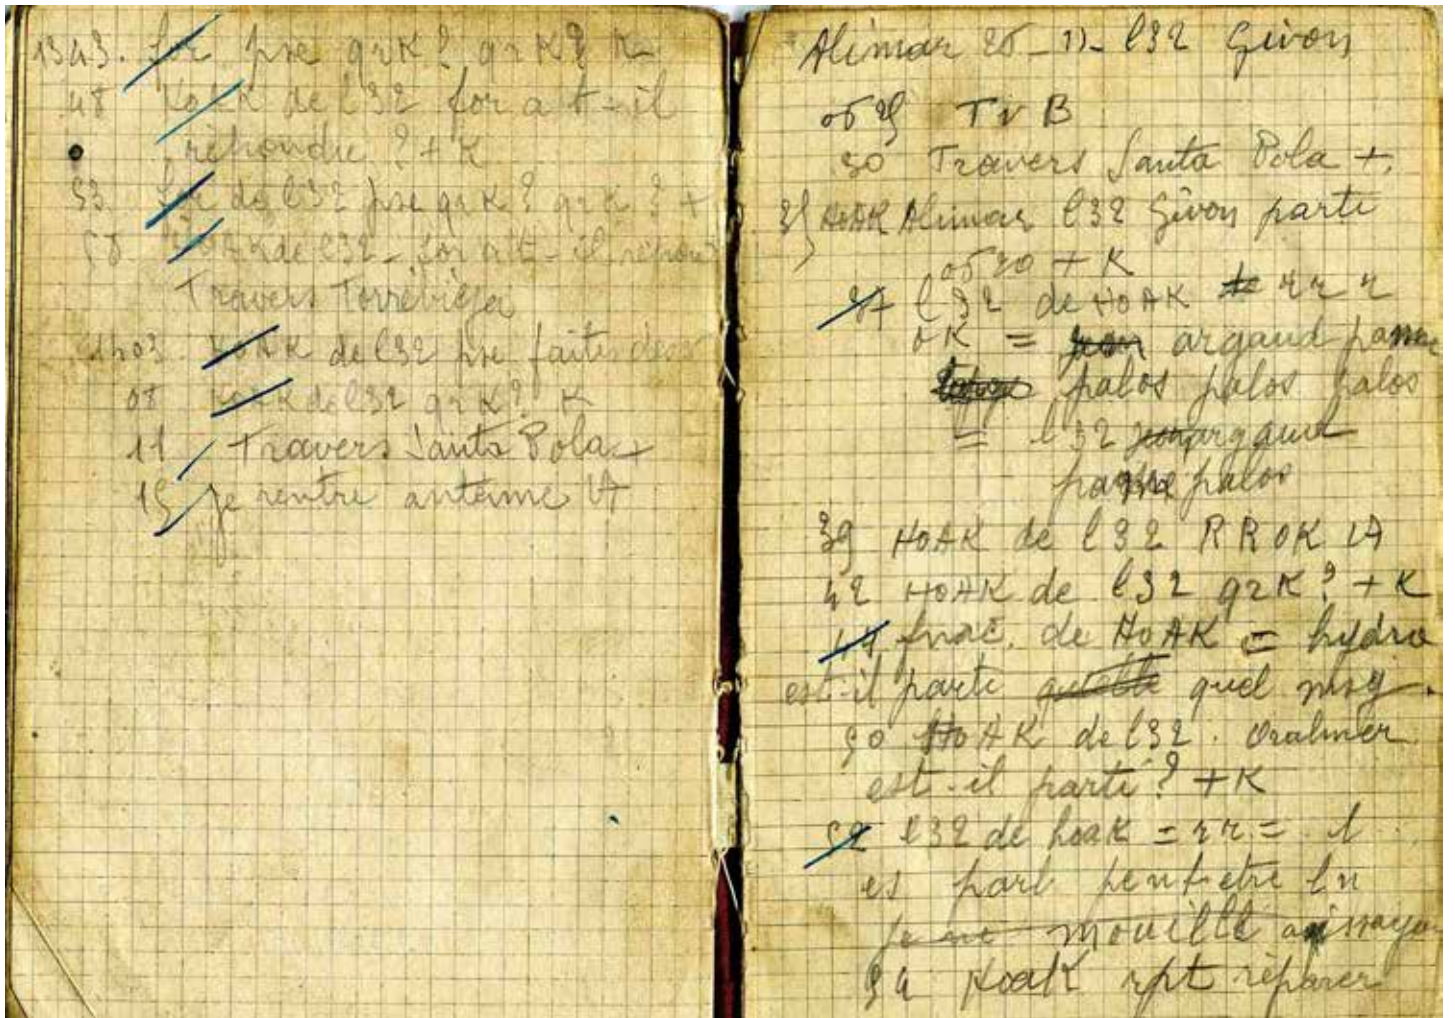 1343. for pse qrk? qrk? K
48 HoAK de l32 for a t-il
répondu ? + K
53 for de l32 pse qrk? qrk? +
58 HoAK de l32 - for a t-il répon
Travers Torrevieja
1403 HoAK de l32 pse faites
08 HoAK de l32 qrk? K
11 Travers Santa Pola +
15 je rentre antenne VA
Alimar 25-11- l32 Givon
0525 TVB
30 Travers Santa Pola +
35 HoAK Alimar l32 Givon parti
0520 + K
37 l32 de HoAK rrr
OK = argaud panne
palos palos palos
= l32 argaud
panne palos
39 HoAK de l32 RROK VA
42 HoAK de l32 qrk? + K
47 fnac. de HoAK = hydro
est-il parti quel msg.
50 HoAK de l32. Oralmer
est-il parti? + K
52 l32 de hoak = rr = l
es part peut etre ln
je ne mouillé
54 HoaK rpt réparer